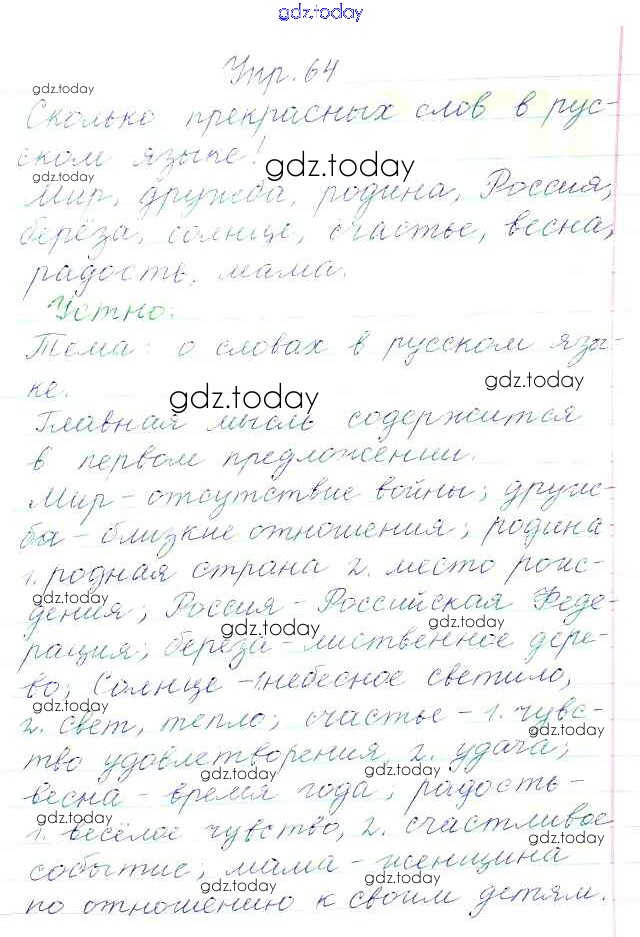 gdz.today
Упр. 64
gdz.today
Сколько прекрасных слов в рус-
ском языке!
gdz.today
gdz.today
Мир, дружба, родина, Россия,
берёза, солнце, счастье, весна,
радость, мама.
Устно:
Тема: о словах в русском язы-
ке.
gdz.today
gdz.today
Главная мысль содержится
в первом предложении.
Мир - отсутствие войны; друж-
ба - близкие отношения; родина
1. родная страна 2. место рож-
gdz.today
дения; Россия - Российская Феде-
gdz.today
gdz.today
рация; берёза - лиственное дере-
во; Солнце - 1. небесное светило,
gdz.today
2. свет, тепло; счастье - 1. чувс-
gdz.today
тво удовлетворения, 2. удача;
gdz.today
gdz.today
весна - время года; радость -
gdz.today
1. весёлое чувство, 2. счастливое
gdz.today
событие; мама - женщина
gdz.today
gdz.today
по отношению к своим детям.